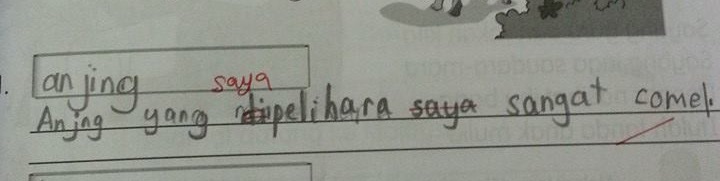 anjing saya
Anjng yang dipelihara saya sangat comel.